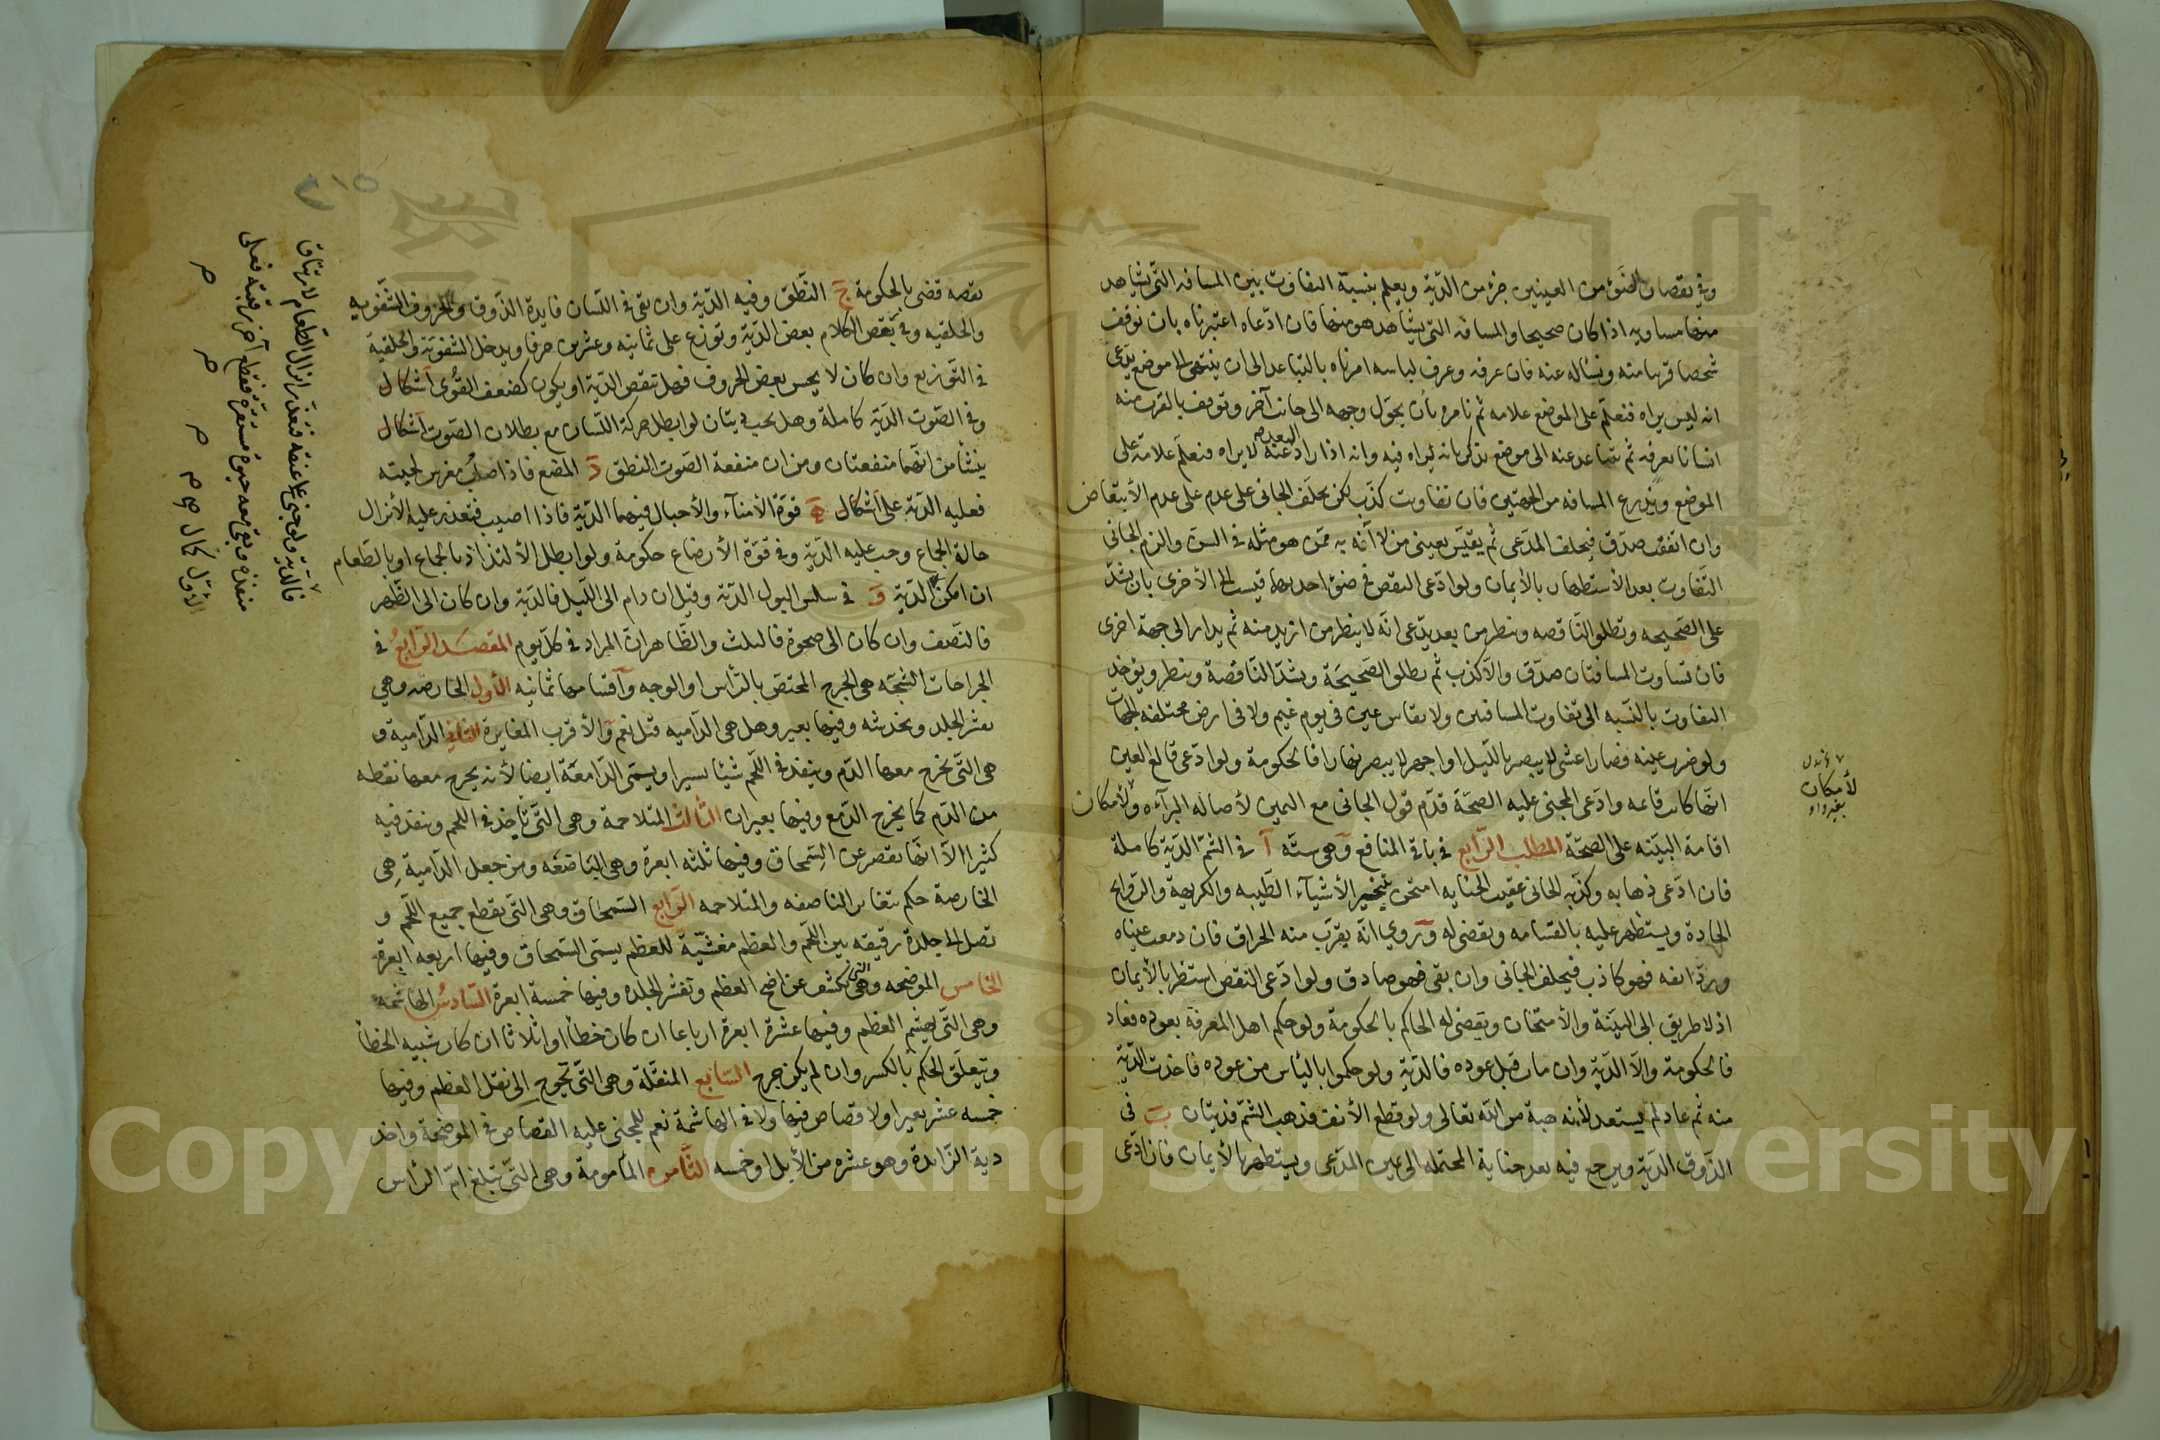 وفي نقصان الضوء من العينين جزء من الدّية ويعلم بنسبة التفاوت بين المسافة التي يشاهد
منها مساويه اذا كان صحيحا والمسافة التي يشاهد هو منها فان ادّعاه اعتبرناه بان نوقف
شخصا قريبا منه ونسأله عنه فان عرفه وعرف لباسه امرناه بالتباعد الى ان ينتهى الى موضع يدّعى
انه ليس يراه فنعلّم على الموضع علامه ثم نامره بأن يحوّل وجهه الى جانب آخر ونوقف بالقرب منه
انسانا يعرفه ثم يتباعد عنه الى موضع يذكر بانه يراه فيه وانه اذا زاد البعد عنه لا يراه فنعلّم علامة على
الموضع ويذرع المسافه من الجهتين فان تفاوت كذب لكن يحلف الجانى على عدم على عدم الأنتقاض
وان اتفقت صدق فيحلف المدّعى ثم يقيّس بعينى من لا آفة به ممّن هو مثله في السن والزم الجانى
التّفاوت بعد الأستظهار بالأيمان ولو ادّعى النقص في ضوء احديهما قيست الى الأخرى بان تشدّ
على الصّحيحه وتطلق النّاقصه وينظر من بعد يدّعى انّه لا ينظر من ازيد منه ثم يدار الى جهة اخرى
فان تساوت المسافتان صدّق والّا كذب ثم يطلق الصّحيحة وتشدّ النّاقصة وينظر ويؤخذ
التفاوت بالنّسبه الى تفاوت المسافتين ولا يقاس عين في يوم غيم ولا في ارض مختلفة الجهات
ولو ضرب عينه فصار اعشى لا يبصر باللّيل او اجهر لا يبصر نهارا فالحكومة ولو ادّعى قالع العين
انّها كانت قائمه وادّعى المجنى عليه الصحّة قدّم قول الجانى مع اليمين لأصاله البرآءه ولأمكان
اقامة البيّنه على الصحّة المطلب الرّابع في باقى المنافع وهى ستّه آ في الشمّ الدّية كاملة
فان ادّعى ذهابه وكذّبه الجانى عقيب الجنايه امتحن بتبخير الأشيآء الطّيبه والكريهة والرّوائح
الحادة ويستظهر عليه بالقسامه ويقضى له وروي انّه يقرّب منه الحراق فان دمعت عيناه
وردّ انفه فهو كاذب فيحلف الجانى وان بقى فهو صادق ولو ادّعى النقص استظهر بالأيمان
اذ لا طريق الى البيّنة والأمتحان ويقضى له الحاكم بالحكومة ولو حكم اهل المعرفة بعوده فعاد
فالحكومة والّا الدّية وان مات قبل عوده فالدّية ولو حكموا باليأس من عوده فاخذت الدّية
منه ثم عاد لم يستعد لأنه هبة من الله تعالى ولو قطع الأنف فذهب الشمّ فديتان ب في
الذّوق الدّية ويرجع فيه بعد جناية المحتمله الى عين المدّعى ويستظهر بالأيمان فان ادّعى
لأمكان
بغير واو
نقصه قضى بالحكومة ج النّطق وفيه الدّية وان بقى في اللّسان فايدة الذّوق والحروف الشّفويه
والحلقيه وفي نقص الكلام بعض الدّية وتوزع على ثمانيه وعشرين حرفا ويدخل الشفويّة والحلقية
في التّوزيع وان كان لا يحسن بعض الحروف فهل تنقص الدّية او يكون كضعف القوى اشكال
وفي الصّوت الدّية كاملة وهل يجب ديتان لو ابطل حركة اللّسان مع بطلان الصّوت اشكال
ينشأ من انّهما منفعتان ومن ان منفعة الصّوت النطق د المضغ فاذا صلب مغرس لحيته
فعليه الدّية على اشكال ه قوّة الأمنآء والأحبال فيهما الدّية فاذا اصيب فتعذر عليه الأنزال
حالة الجماع وجب عليه الدّية وفي قوّة الأرضاع حكومة ولو ابطل الألتذاذ بالجماع او بالطّعام
ان امكن الدّية و في سلس البول الدّية وقيل ان دام الى اللّيل فالدّية وان كان الى الظّهر
فالنّصف وان كان الى ضحوة فالثلث والظّاهر انّ المراد في كلّ يوم المقصد الرّابع في
الجراحات الشجّه هى الجرح المختصّ بالرّاس او الوجه وآقسامها ثمانيه الأول الخارصه وهي
تقشر الجلد وتخدشه وفيها بعير وهل هى الداميه قيل نعم والأقرب المغايرة الثانى الدّامية و
هى التّى يخرج معها الدّم وينفذ في اللّحم شيئا يسيرا ويسمّى الدّامعة ايضا لأنه يخرج معها نقطه
من الدّم كما يخرج الدّمع وفيها بعيران الثالث المتلاحمة وهى التّى تأخذ في اللحم وينفذ فيه
كثيرا الّا انّها تقصر عن السّمحاق وفيها ثلثه ابعرة وهى البّاضعه ومن جعل الدّامية هي
الخارصة حكم بتغاير الباضعه والمتلاحمه الرّابع السّمحاق وهى التّى يقطع جميع اللّحم و
تصل الى جلدة رقيقه بين اللّحم والعظم مغشّيّة للعظم يسمى السّمحاق وفيها اربعه ابعرة
الخامس الموضحه وهى التى تكشف عن وضح العظم وتقشر الجلده وفيها خمسة ابعرة السّادس الهاشمه
وهى التّى يهشم العظم وفيها عشرة ابعرة ارباعا ان كان خطأ او اثلاثا ان كان شبيه الخطأ
ويتعلّق الحكم بالكسر وان لم يكن جرح السّابع المنقّلة وهى التّى تحوج الى نقل العظم وفيها
خمسه عشر بعيرا ولا قصاص فيها ولا في الهاشمة نعم للمجنى عليه القصاص في الموضحة واخذ
دية الزّايدة وهو عشره من الأبل او خمسه الثّامن المأمومة وهى التّى تبلغ امّ الرّاس
فالدّية ولو جنى على عنقه فتعذّر انزال الطّعام لارتتاق
منفذه وبقى معه حيوة مستقرة فقطع آخر رقبته فعلى
الأوّل كمال
٤١٥
Copyright © King Saud University